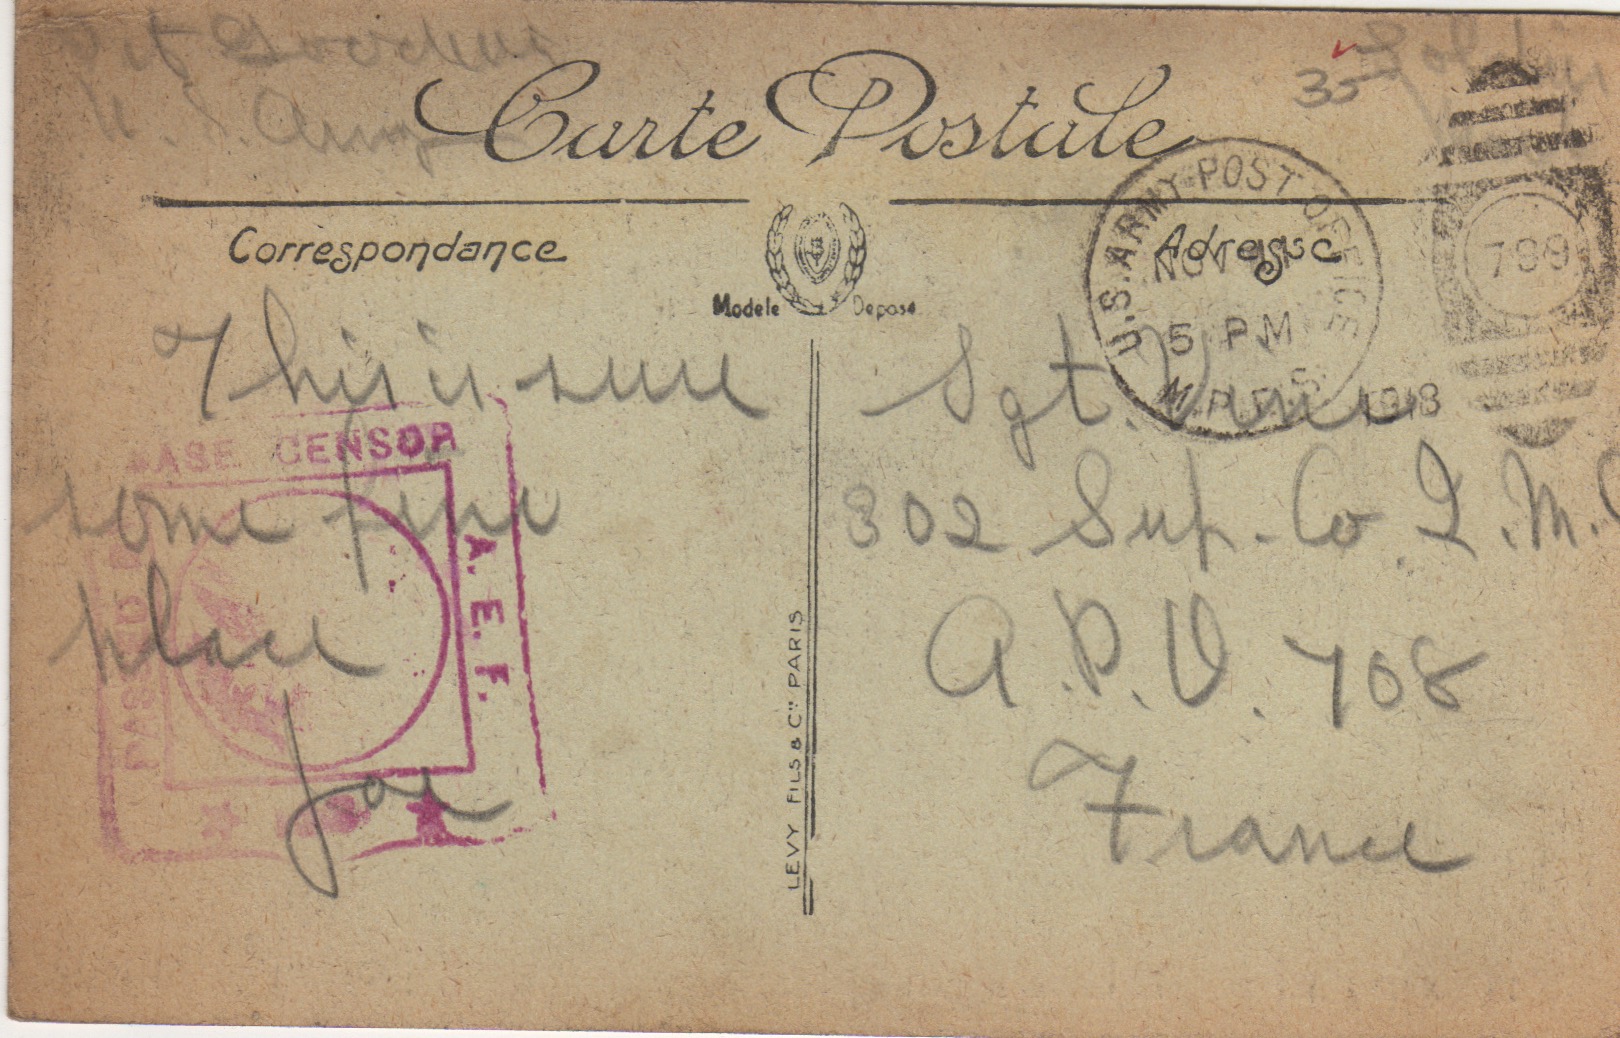 U. S. Army
35
Carte Postale
Correspondance
Adresse
Modele Deposé
U.S. ARMY POST OFFICE
NOV
5 PM
M.P.E.S. 1918
789
This is sure
some fine
place
Joe
Sgt.
302 Sup. Co. Q.M.C
A.P.O. 708
France
BASE CENSOR
A.E.F.
PASSED
LEVY FILS & Cie PARIS